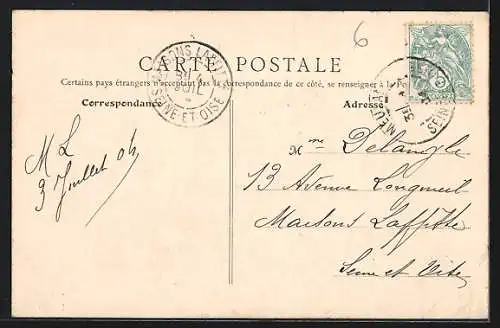 6
CARTE POSTALE
Certains pays étrangers n'acceptant pas la correspondance de ce côté, se renseigner à la Po
Correspondance
Adresse
MAISONS LAFFITTE
SEINE-ET-OISE
M L
3 Juillet 04
Mme Delangle
13 Avenue Longueil
Maisons Laffitte
Seine et Oise